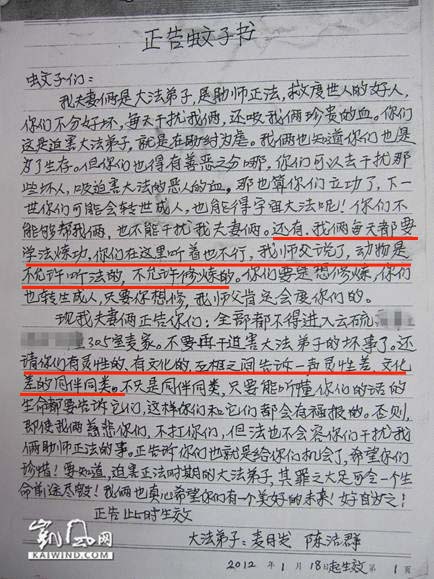 正告蚊子书
蚊子们：
我夫妻俩是大法弟子，是助师正法，救度世人的好人，
你们不分好坏，每天干扰我俩，还吸我俩珍贵的血。你们
这是迫害大法弟子，就是在助纣为虐。我俩也知道你们也是
为了生存。但你们也得有善恶之分哪，你们可以去干扰那
些坏人，吸迫害大法的恶人的血。那也算你们立功了，下一
世你们可能会转世成人，也能得宇宙大法呢！你们不
能够帮我俩，也不能干扰我夫妻俩。还有，我俩每天都要
学法炼功，你们在这里听着也不行，我师父说了，动物是
不允许听法的，不允许修炼的。你们要是想修炼，你们
也转生成人，只要你想修，我师父肯定会度你们的。
现我夫妻俩正告你们：全部都不得进入云硫
305室麦家。不要再干迫害大法弟子的坏事了。还
请你们有灵性的，有文化的，互相之间告诉一声灵性差，文化
差的同伴同类。不只是同伴同类，只要能听懂你们的话的
生命都要告诉它们，这样你们和它们都会有福报的。否则，
即使我俩慈悲你们，不打你们，但法也不会容你们干扰我
俩助师正法的事。正告你们也就是给你们机会了，希望你们
珍惜！要知道，迫害正法时期的大法弟子，其罪之大足可令一个生
命前途尽毁！我俩也真心希望你们有一个美好的未来！好自为之！
正告此时生效
大法弟子：麦日发 陈洁群
2012年1月18日起生效
第1页
凯风网
KAIWIND.COM